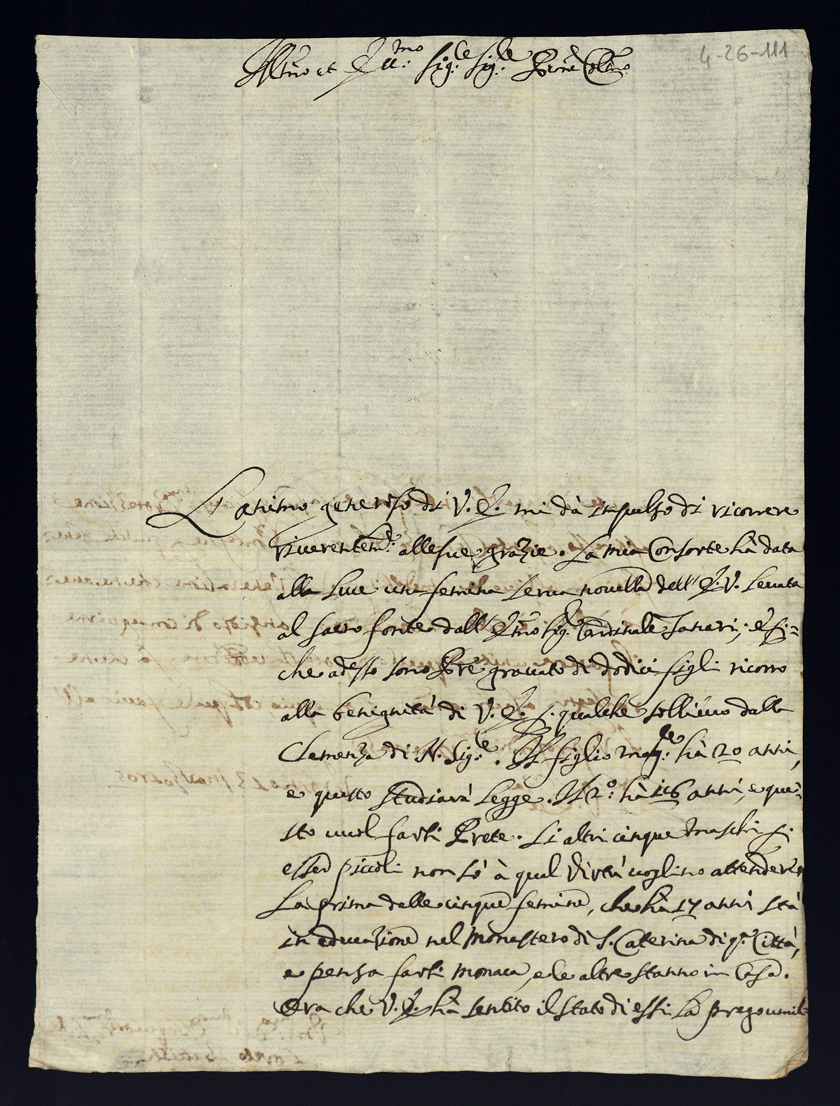 4-26-111
Ill.mo et Ecc.mo Sig.re Sig.re P.rone Col.mo
L'animo generoso di V. E. mi dà impulso di ricorrere
riverentem.te alle sue grazie. La mia Consorte hà data
alla luce una femina serva novella dell' E. V. levata
al Sacro fonte dall' E.mo Sig.r Cardinale; e si=
che adesso sono Pre gravato di dodici figli ricorro
alla benignità di V. E. p. qualche sollievo dalla
Clemenza di N. Sig.re. Il figlio mag.re hà 20 anni,
e questo studiarà Legge. Il 2.o hà 16 anni, e que=
sto vuol farsi Prete. Li altri cinque maschi p.
esser piccoli non sò à qual virtù voglino attendere.
La prima delle cinque femine, che hà 17 anni stà
in educazione nel Monastero di S. Caterina di q.a Città,
e pensa farsi Monaca, e le altre stanno in Casa.
Ora che V. E. hà sentito il stato di essi La prego umil